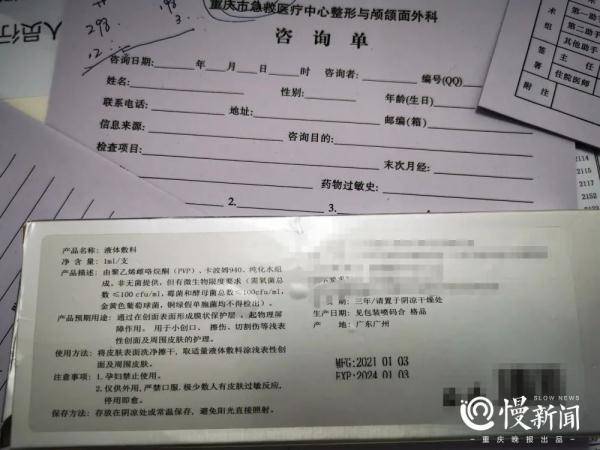 人员行
293
193
3.
12.
重庆市急救医疗中心整形与颅颌面外科
咨询单
咨询日期: 年 月 日 时 咨询者: 编号(QQ)
姓名: 性别: 年龄(生日)
联系电话: 地址: 邮编(箱)
信息来源: 咨询目的:
检查项目: 末次月经:
药物过敏史:
2. 3.
术
组
第二助手
其他助手
签
署
主 任
住院医师
附 注
2114
2115
2117
2122
产品名称: 液体敷料
净 含 量: 1ml/支
产品描述: 由聚乙烯吡咯烷酮 (PVP)、卡波姆940、纯化水组
成。非无菌提供,但有微生物限度要求(需氧菌总
数≤100 cfu/ml, 霉菌和酵母菌总数≤100cfu/ml,
金黄色葡萄球菌, 铜绿假单胞菌均不得检出)。
产品预期用途: 通过在创面表面形成膜状保护层,起物理屏
障作用。 用于小创口、 擦伤、切割伤等浅表
性创面及周围皮肤的护理。
使用方法: 将皮肤表面洗净擦干, 取适量液体敷料涂浅表性创
面及周围皮肤。
注意事项: 1.孕妇禁止使用。
2.仅供外用,严禁口服,极少数人有皮肤过敏反应,
停用即愈。
保存方法: 存放在阴凉处或常温保存, 避免阳光直接照射。
三年/请置于阴凉干燥处
生产日期: 见包装喷码合 格品
产 地: 广东广州
MFG:2021 01 03
EXP:2024 01 03
慢新闻
SLOW NEWS
重庆晚报出品